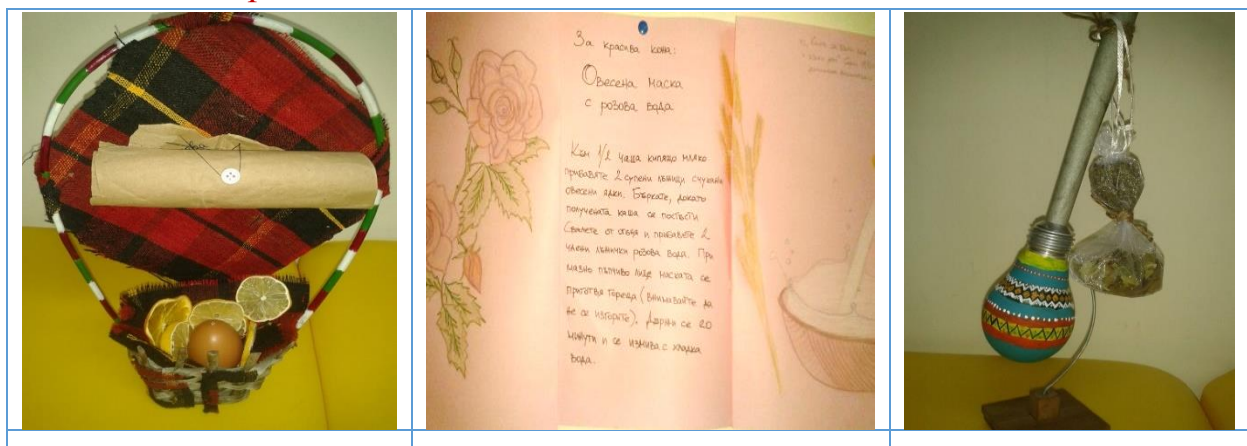 За красива кожа:
Овесена маска
с розова вода
Към 1/2 чаша кипящо мляко
прибавяте 2 супени лъжици счукани
овесени ядки. Бъркате, докато
получената каша се посгъсти
Свалете от огъня и прибавете 2
чаени лъжички розова вода. При
мазно пъпчиво лице маската се
приготвя гореща (внимавайте да
не се изгорите). Държи се 20
минути и се измива с хладка
вода.